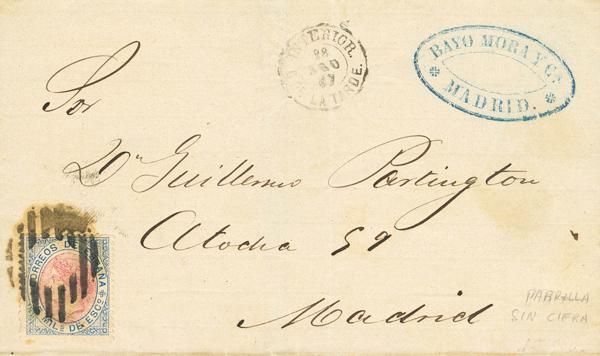 INTERIOR.
28
AGO
67
DE LA TARDE.
BAYO MORA Y Cª.
MADRID.
Sor
Dn Guillermo Partington
Atocha 59
CORREOS DE ESPAÑA
MILs DE ESCo
Madrid
PARRILLA
SIN CIFRA